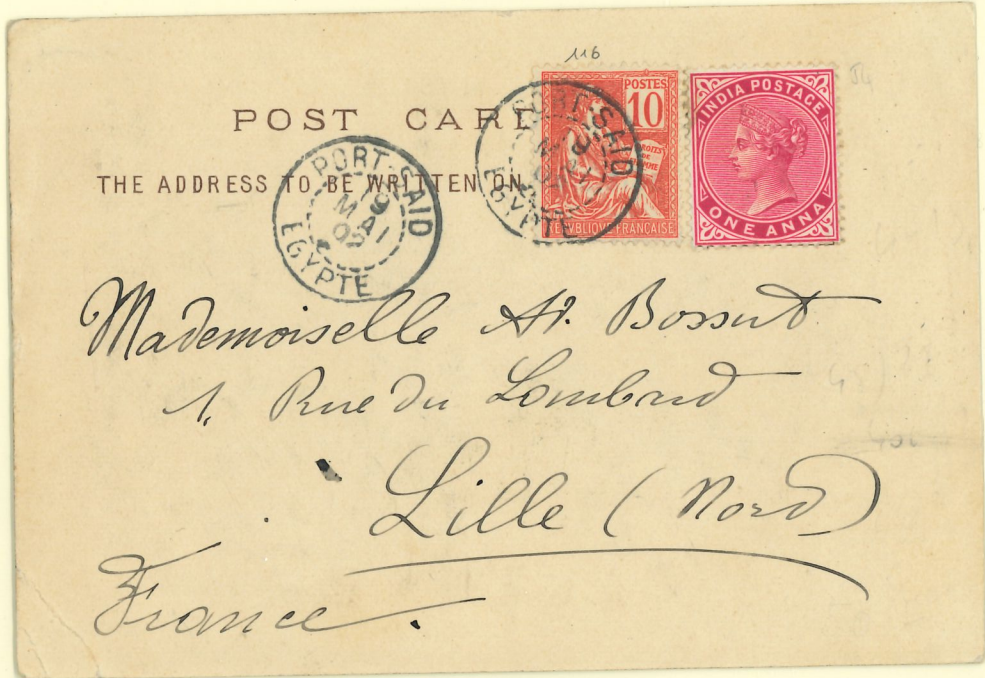 116
POST CARD
THE ADDRESS TO BE WRITTEN ON
PORT-SAID
9
MAI
02
EGYPTE
PORT-SAID
EGYPTE
POSTES
10
DROITS
DE
REPUBLIQUE FRANÇAISE
INDIA POSTAGE
ONE ANNA
Mademoiselle Bossut
1, Rue du Lombard
Lille (Nord)
France.